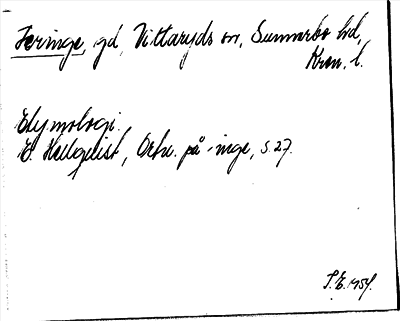 Feringe, gd, Vittaryds sn, Sunnerbo hd,
Kron. l.
Etymologi.
E. Hellquist, Ortn. på -inge, s. 27.
S.E. 1954.